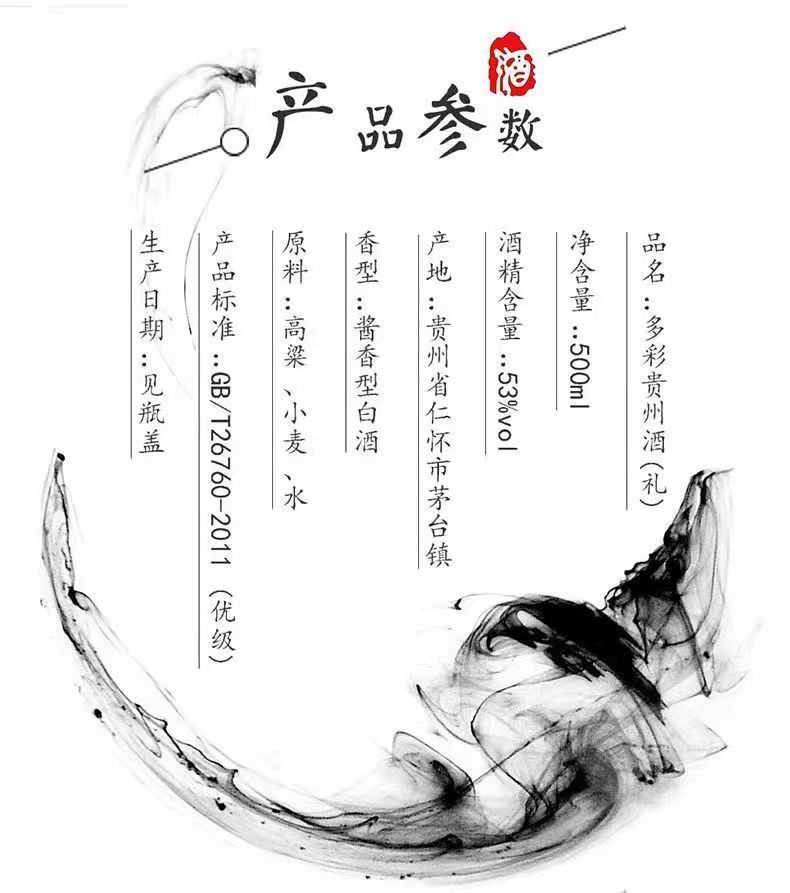 产品参数
酒
品名：多彩贵州酒(礼)
净含量：500ml
酒精含量：53%vol
产地：贵州省仁怀市茅台镇
香型：酱香型白酒
原料：高粱、小麦、水
产品标准：GB/T26760-2011（优级）
生产日期：见瓶盖